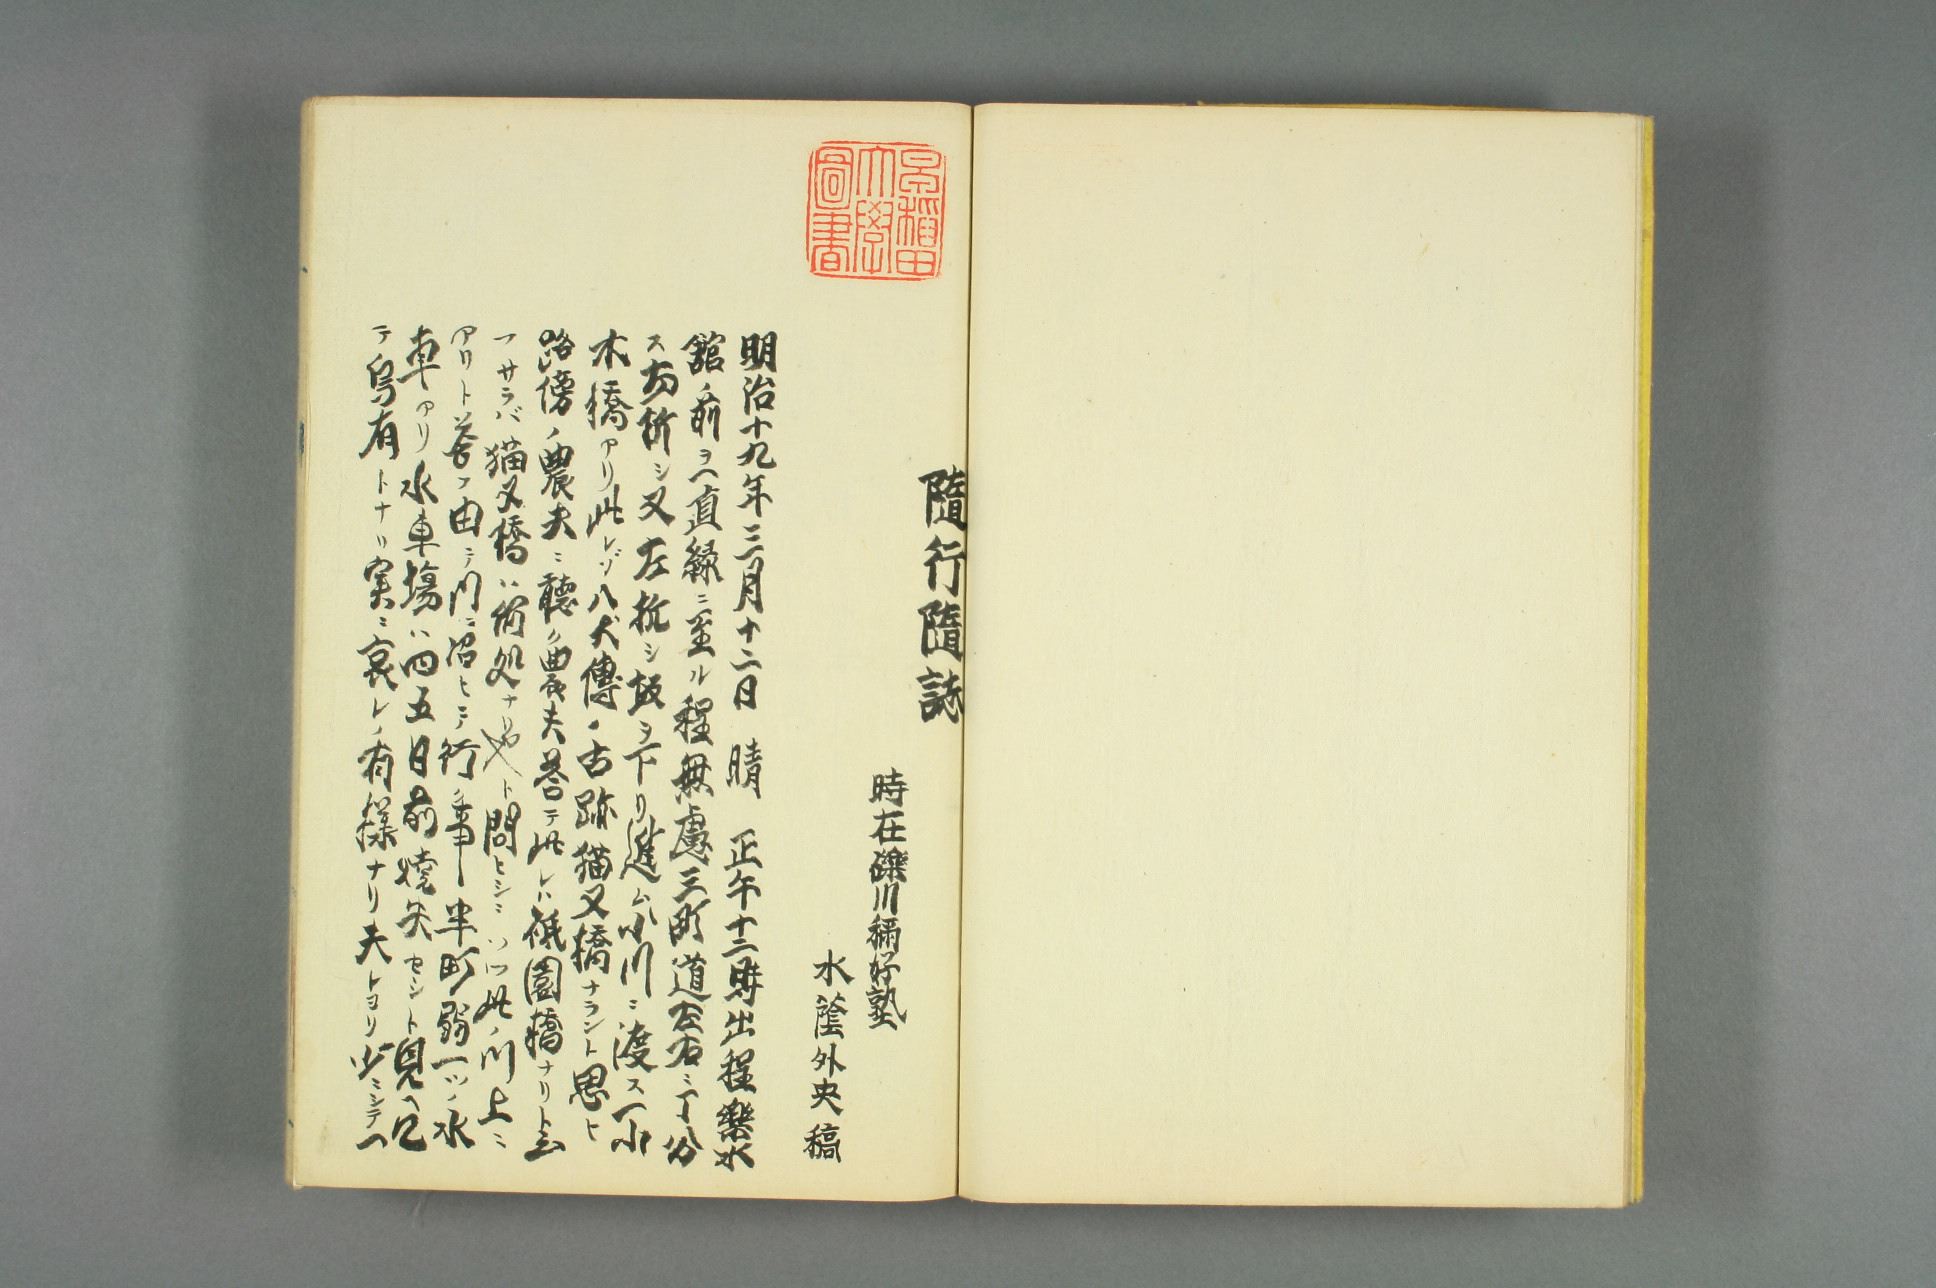 早稲田
大學
圖書
隨行隨誌
時在礫川稱好塾
水蔭外史稿
明治十九年三月十二日 晴 正午十二時出程樂水
館ノ前ヲ一直線ニ至ル程無慮三町道左右ニ丁分
ス右折シ又左折シ坂ヲ下リ進ム小川ニ渡ス一小
木橋アリ此レゾ八犬傳ノ古跡猫又橋ナラント思ヒ
路傍ノ農夫ニ聽ク農夫答テ此レハ祗園橋ナリト云
フサラバ猫又橋ハ何処ナリヤト問ヒシニ此ノ川上ニ
アリト答フ由テ川ニ沿ヒテ行ク事半町弱一ツノ水
車アリ水車場ハ四五日前燒失セシト見ヘ已
テ烏有トナリ実ニ哀レノ有様ナリ夫レヨリ少ニシテ一